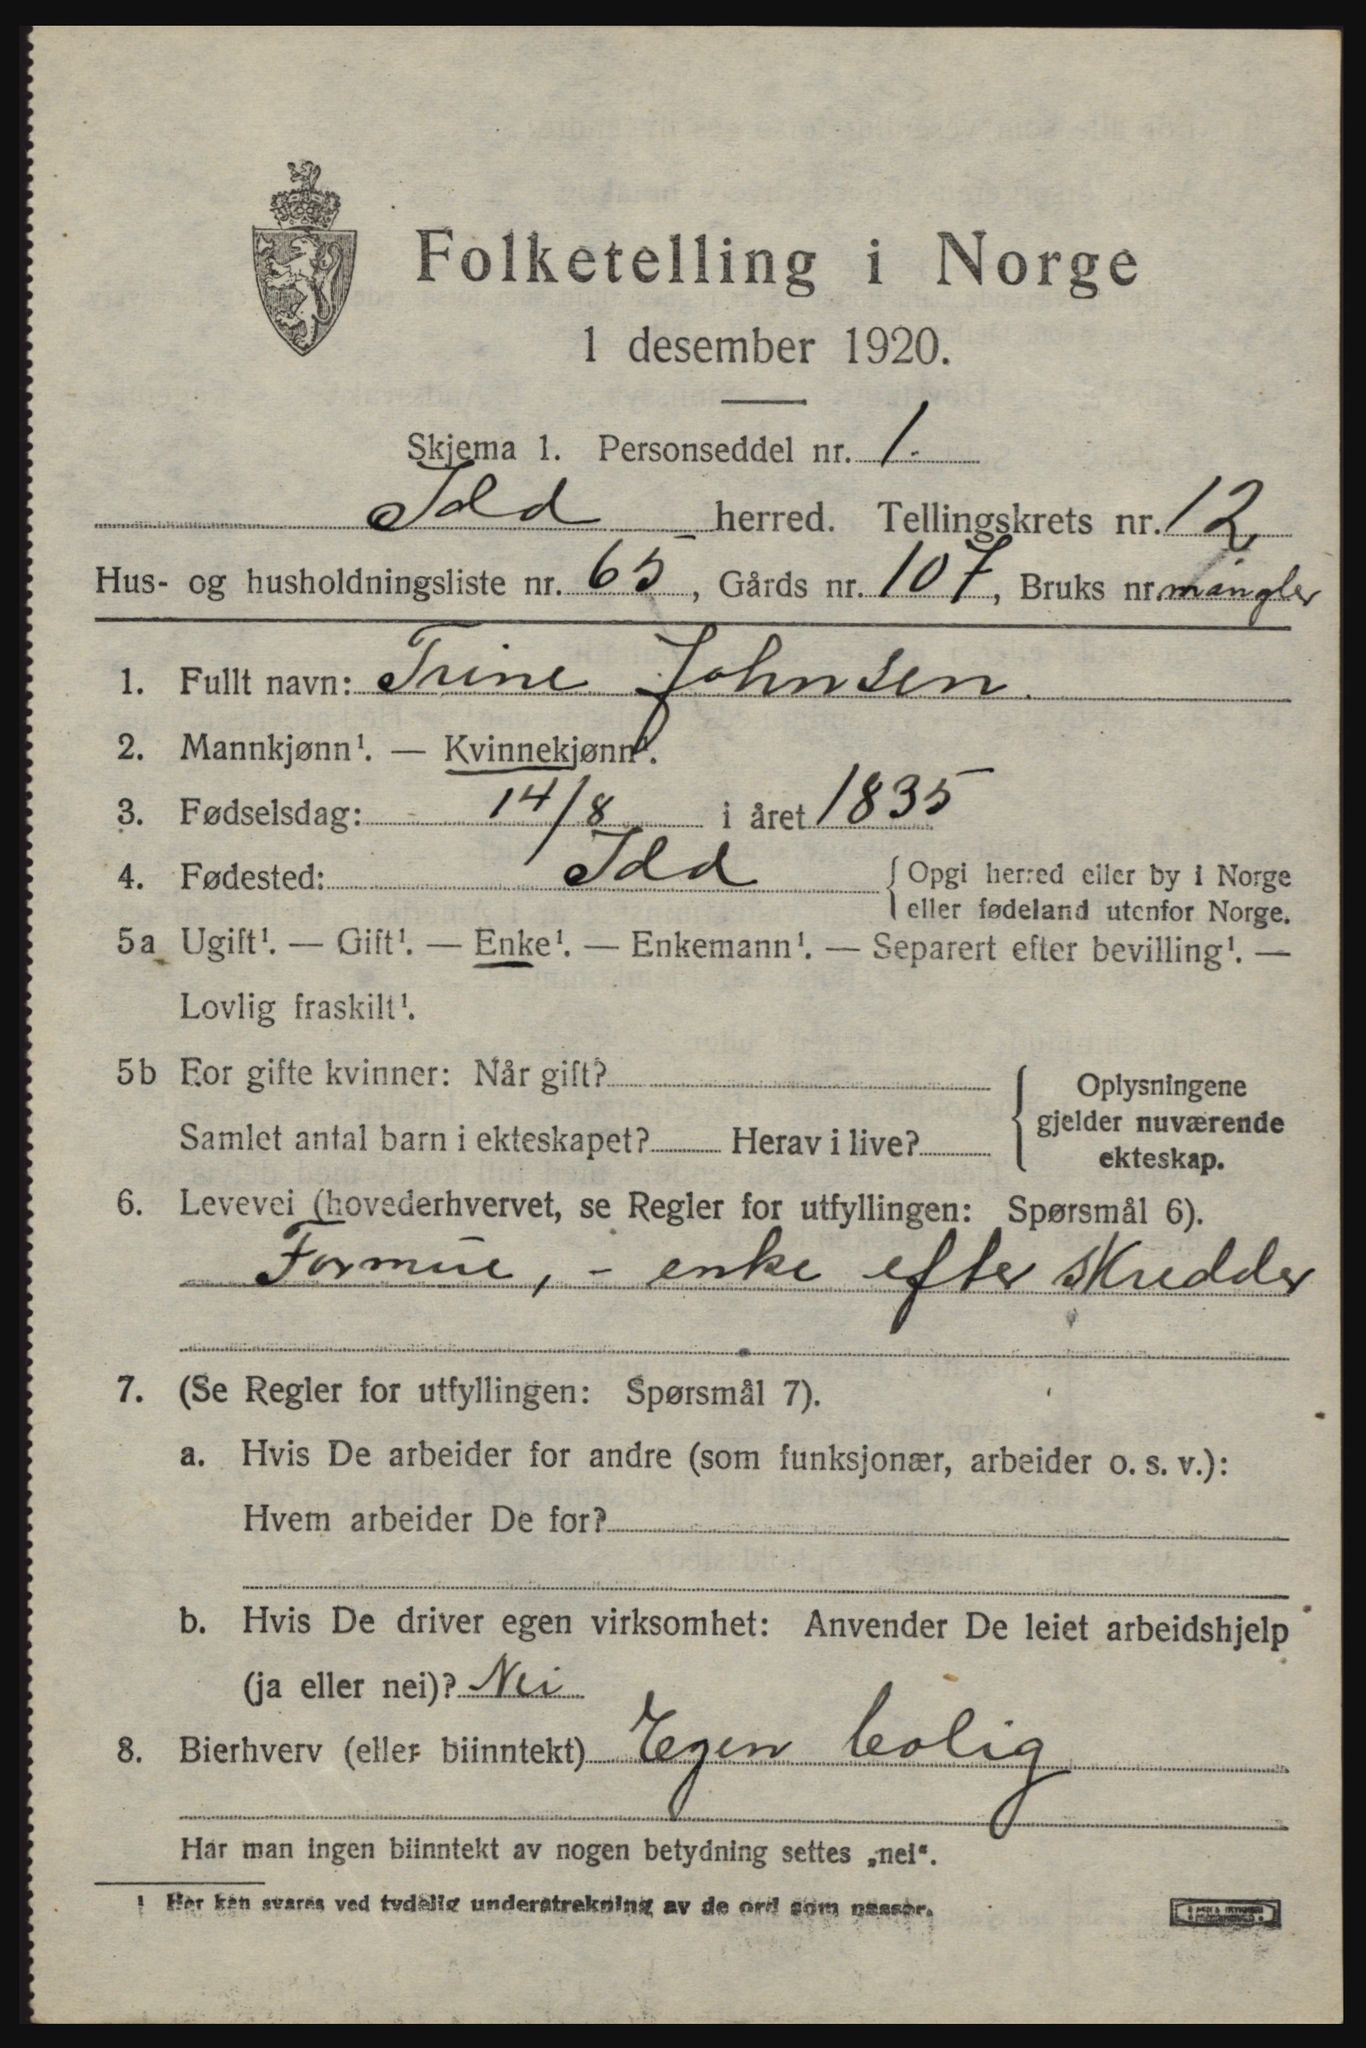 Folketelling i Norge
1 desember 1920.
Skjema 1. Personseddel nr. 1.
Idd herred. Tellingskrets nr. 12
Hus- og husholdningsliste nr. 65, Gårds nr. 107, Bruks nr. mangler
1. Fullt navn: Trine Johnsen.
2. Mannkjønn¹. — Kvinnekjønn¹.
3. Fødselsdag: 14/8 i året 1835
4. Fødested: Idd { Opgi herred eller by i Norge
eller fødeland utenfor Norge.
5a Ugift¹. — Gift¹. — Enke¹. — Enkemann¹. — Separert efter bevilling¹. —
Lovlig fraskilt¹.
5b For gifte kvinner: Når gift? { Oplysningene
gjelder nuværende
Samlet antal barn i ekteskapet? Herav i live?
ekteskap.
6. Levevei (hovederhvervet, se Regler for utfyllingen: Spørsmål 6).
Formue, - enke efter skredder
7. (Se Regler for utfyllingen: Spørsmål 7).
a. Hvis De arbeider for andre (som funksjonær, arbeider o. s. v.):
Hvem arbeider De for?
b. Hvis De driver egen virksomhet: Anvender De leiet arbeidshjelp
(ja eller nei)? Nei
8. Bierhverv (eller biinntekt) Egen bolig
Har man ingen biinntekt av nogen betydning settes „nei“.
¹ Her kan svares ved tydelig understrekning av de ord som passer.